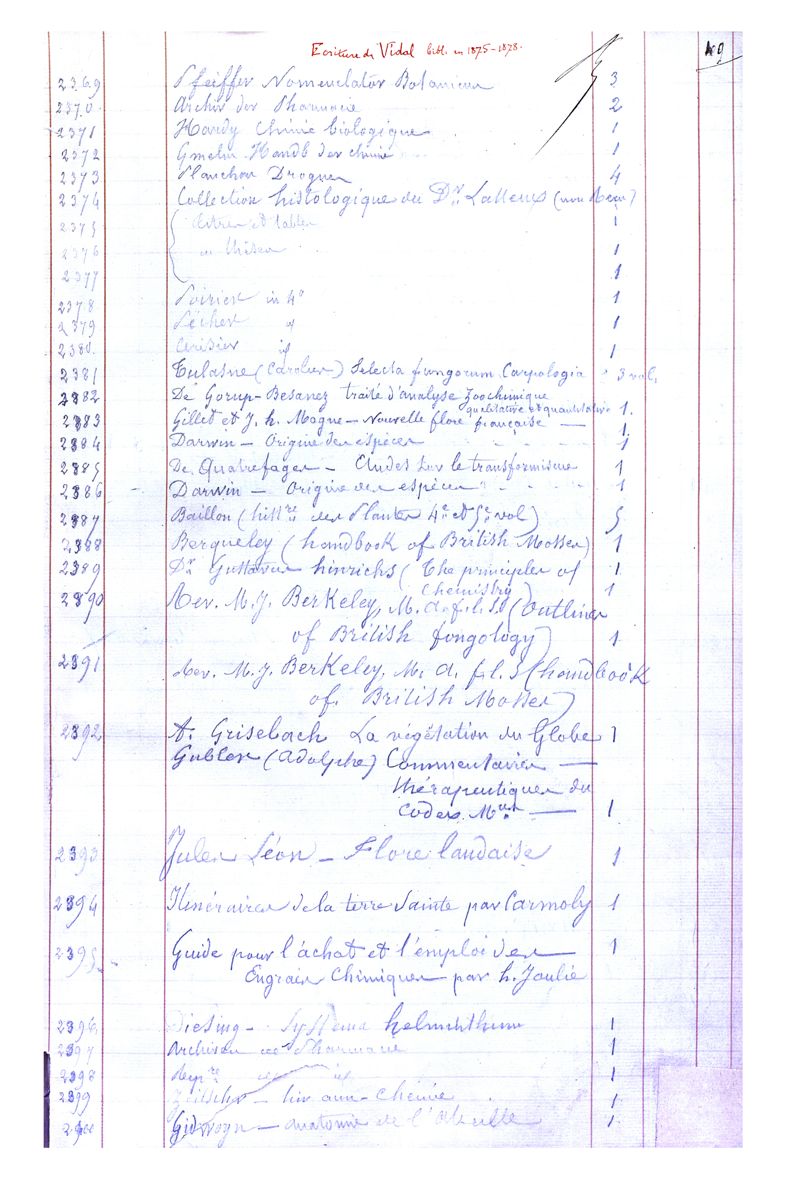 Ecriture de Vidal bibl. en 1875-1878.
49
2369 Pfeiffer Nomenclator Botanicus 3
2370 Archiv der Pharmacie 2
2371 Hardy Chimie biologique 1
2372 Gmelin Handb der chimie 1
2373 Planchon Drogues 4
2374 Collection histologique du Dr
2375 et tables 1
2376 1
2377 1
2378 Poirier in 4° 1
2379 Pêcher id 1
2380 Cerisier id 1
2381 Tulasne (Carolus) Selecta fungorum Carpologia 3 vol.
2382 De Gorup-Besanez traité d'analyse Zoochimique
qualitative et quantitative 1.
2383 Gillet et J. h. Magne - Nouvelle flore française — 1.
2384 Darwin - Origine des espèces 1
2385 De Quatrefages - Etudes sur le transformisme 1
2386 Darwin - Origine des espèces 1
2387 Baillon (histre des Plantes 4e et 5e vol) 5
2388 Berqueley (handbook of British Mosses) 1
2389 Dr Gustavus hinrichs (The principles of 1
Chemistry) 1
2390 Rev. M. J. Berkeley, M. d. f. l. S (Outlines
of British fungology) 1
2391 Rev. M. J. Berkeley, M. d. f. l. S (handbook
of British Mosses)
2392 A. Grisebach La végétation du Globe 1
Gubler (Adolphe) Commentaires —
thérapeutiques du
Codex — 1
2393 Jules Léon - Flore landaise 1
2394 Itinéraires de la terre Sainte par Carmoly 1
2395 Guide pour l'achat et l'emploi des 1
Engrais Chimiques par h. Joulie
2396 Diesing - Systema helminthum 1
2397 Pharmacie 1
2398 1
2399 chemie 1
2400 anatomie de l'Abeille 1